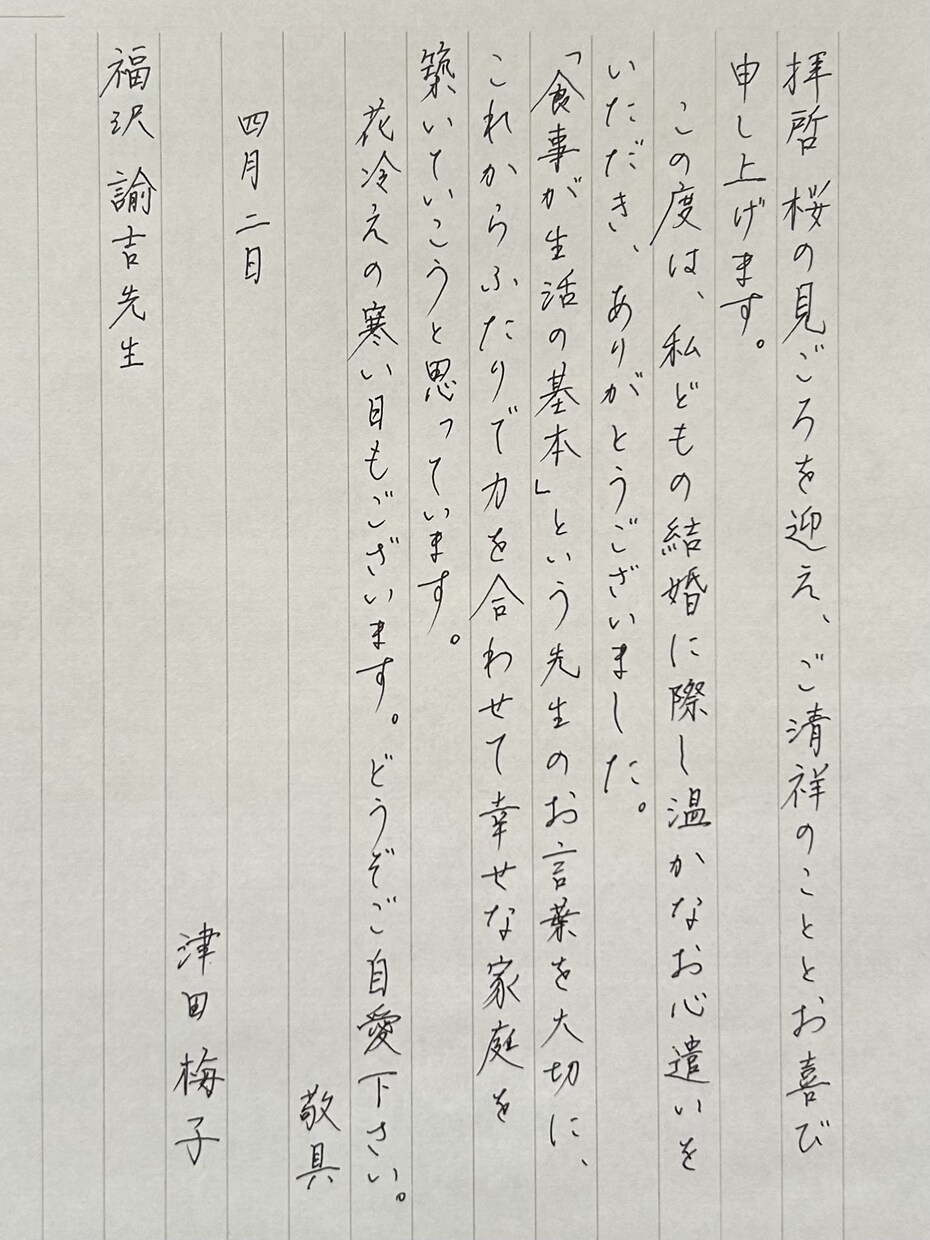 拝啓 桜の見ごろを迎え、ご清祥のこととお喜び
申し上げます。
この度は、私どもの結婚に際し温かなお心遣いを
いただき、ありがとうございました。
「食事が生活の基本」という先生のお言葉を大切に、
これからふたりで力を合わせて幸せな家庭を
築いていこうと思っています。
花冷えの寒い日もございます。どうぞご自愛下さい。
敬具
四月二日
津田梅子
福沢諭吉先生